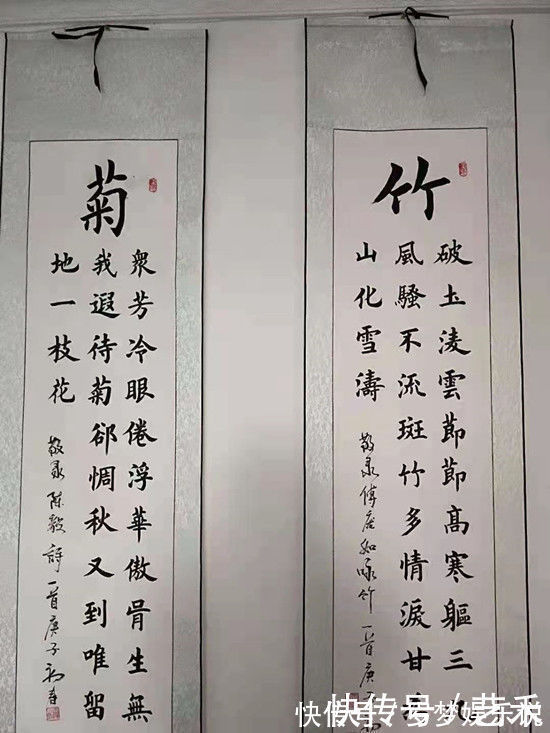 竹
破土淩雲節節高寒軀三
風騷不流斑竹多情淚甘
山化雪濤
敬录傅
咏竹一首庚子
菊
衆芳冷眼倦浮華傲骨生無
我遐待菊郤惆秋又到唯留
地一枝花
敬录陈毅詩一首庚子初春
快传号/艺禾